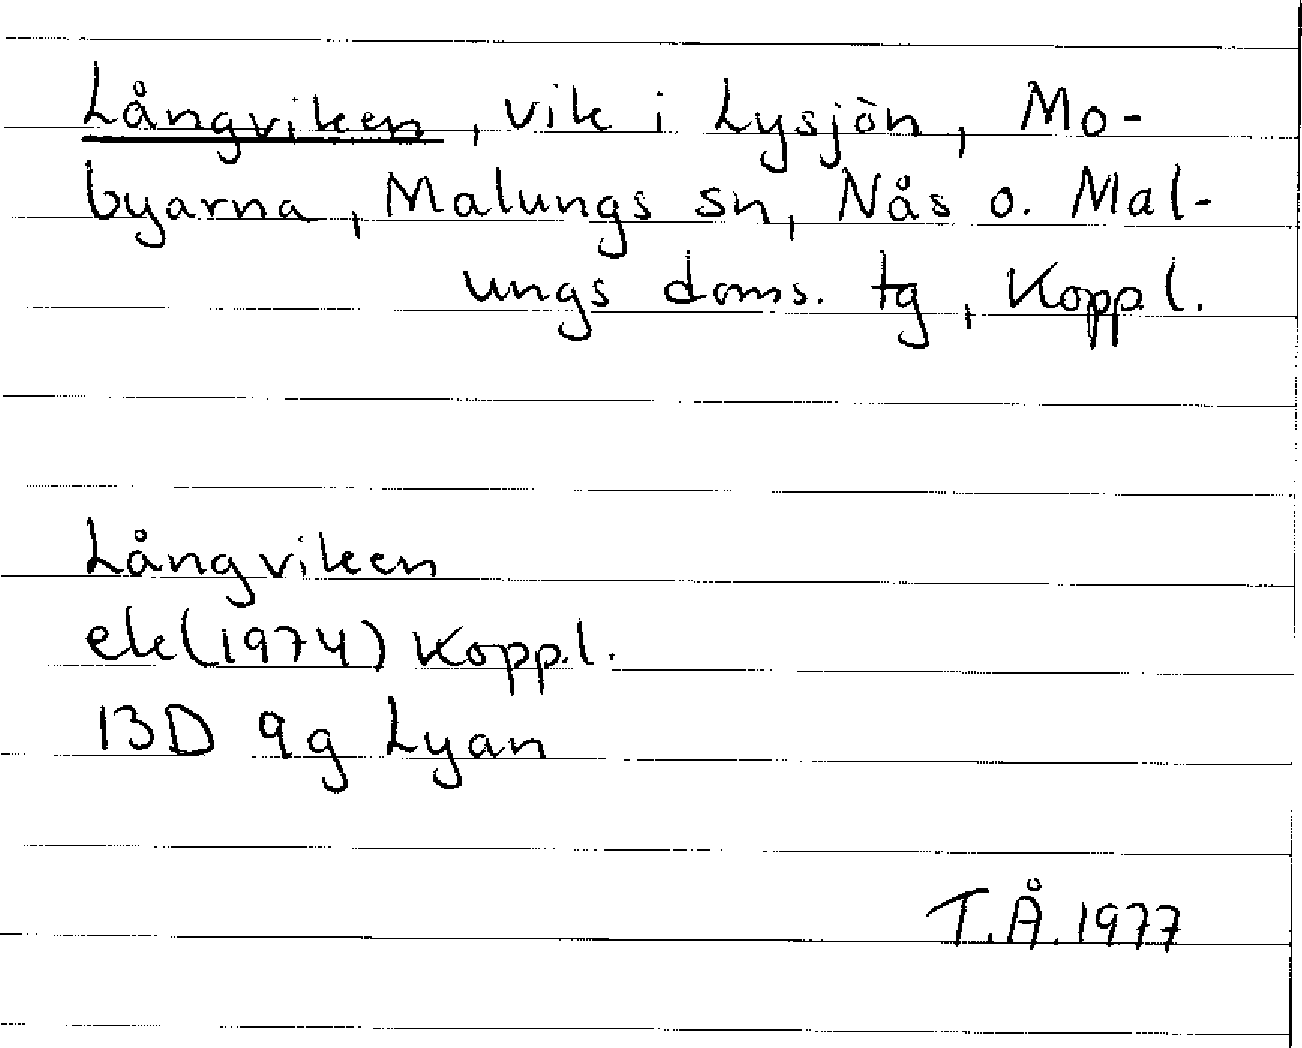 Långviken, vik i Lysjön, Mo-
byarna, Malungs sn, Nås o. Mal-
ungs doms. tg, Koppl.
Långviken
ek(1974) Koppl.
13D 9g Lyan
T.Å. 1977